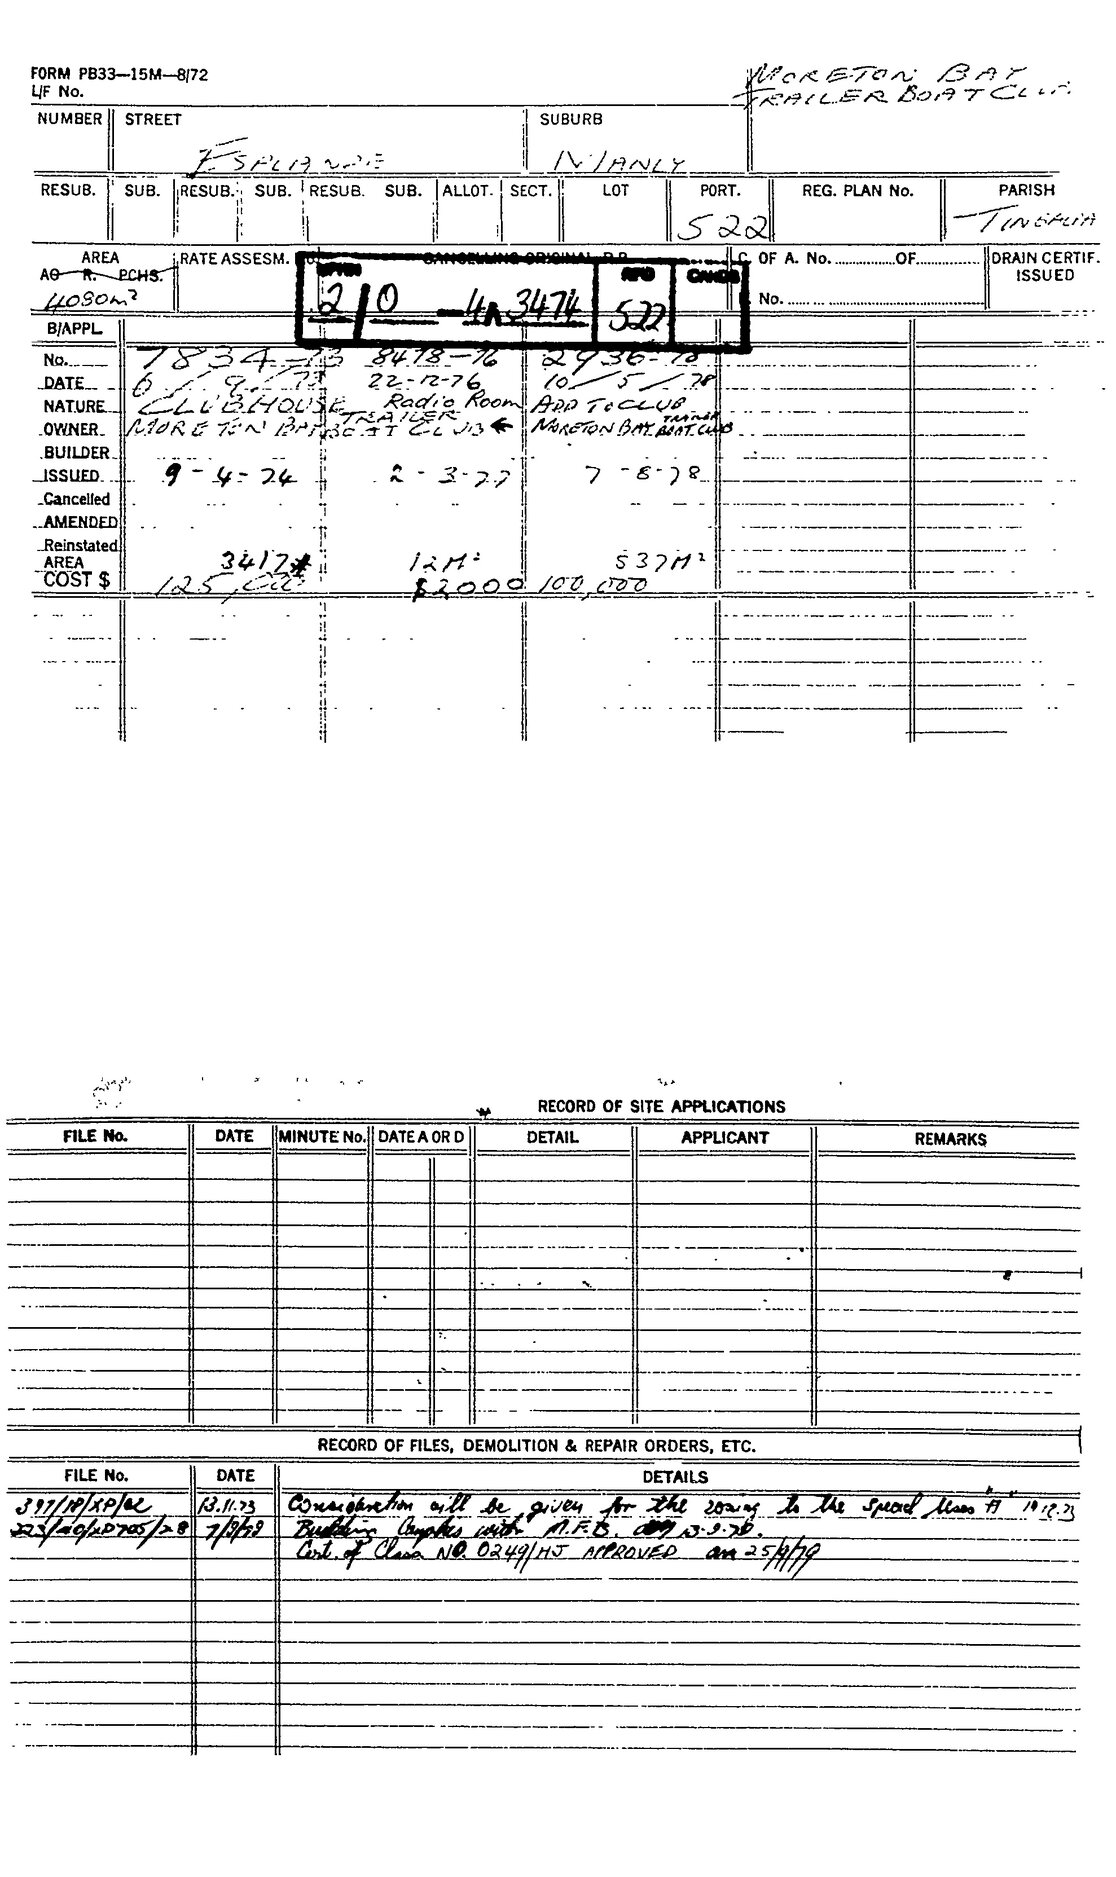 FORM PB33—15M—8/72
L/F No.
MORETON BAY
TRAILER BOAT CLUB.
NUMBER STREET SUBURB
ESPLANDE MANLY
RESUB. SUB. RESUB. SUB. RESUB. SUB. ALLOT. SECT. LOT PORT. REG. PLAN No. PARISH
522 TINGALPA
AREA RATE ASSESM. CANCELLING ORIGINAL R.P. C. OF A. No. OF DRAIN CERTIF.
AC R. PCHS. ISSUED
4080m² No.
2/0-4 3474 RPD 522 CANCS
B/APPL.
No. 7834-73 8478-76 2936-78
DATE 6/9/73 22-12-76 10/5/78
NATURE CLUBHOUSE Radio Room ADD TO CLUB
OWNER MORETON BAY TRAILER BOAT CLUB ← MORETON BAY TRAILER BOAT CLUB
BUILDER
ISSUED 9-4-74 2-3-77 7-8-78
Cancelled
AMENDED
Reinstated
AREA 3417 12M² 537M²
COST $ 125,000 $2000 100,000
RECORD OF SITE APPLICATIONS
FILE No. DATE MINUTE No. DATE A OR D DETAIL APPLICANT REMARKS
RECORD OF FILES, DEMOLITION & REPAIR ORDERS, ETC.
FILE No. DATE DETAILS
13.11.73 Consideration will be given for the zoning to the special Uses "A" 19.12.73
Building Complies with M.F.B.
Cert. of Class NO. 0249/HJ APPROVED on 25/9/79